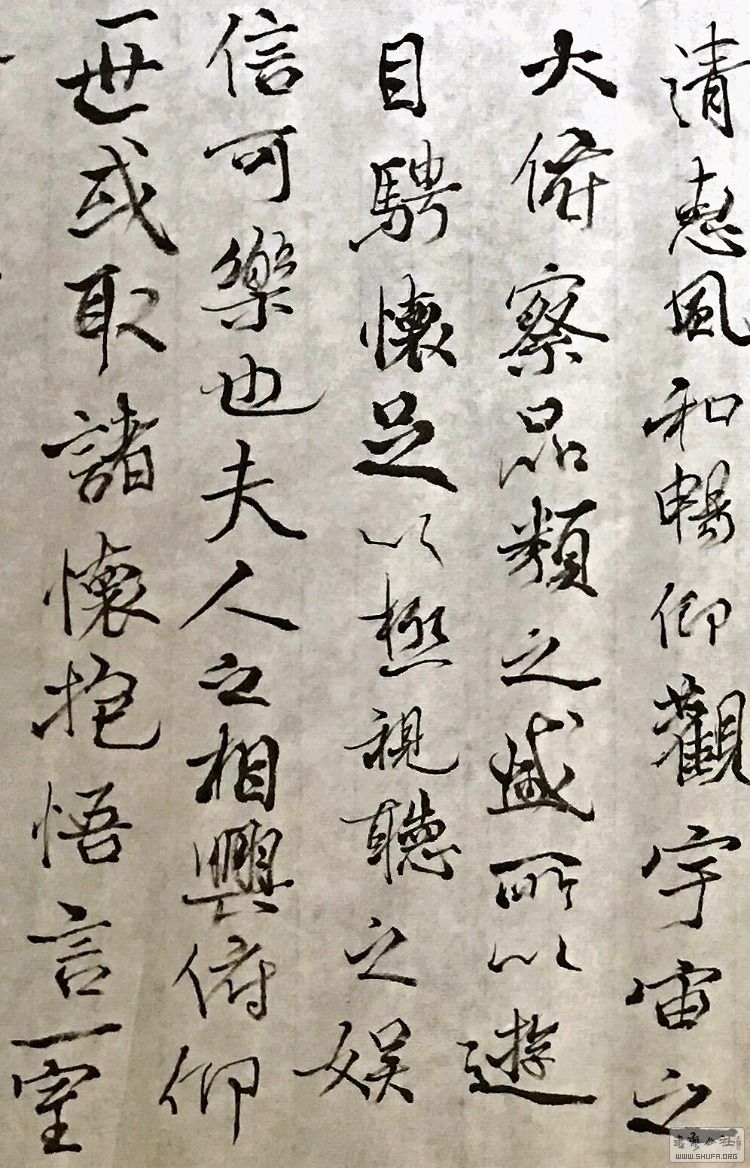 清惠風和暢仰觀宇宙之
大俯察品類之盛所以遊
目騁懷足以極視聽之娛
信可樂也夫人之相與俯仰
一世或取諸懷抱悟言一室
书艺公社
WWW.SHUFA.ORG